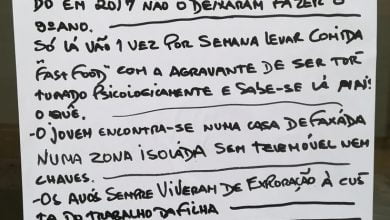 DO EM 2017 NÃO O DEIXARAM FAZER O
9º ANO.
SÓ LÁ VÃO 1 VEZ POR SEMANA LEVAR COMIDA
"FAST FOOD" COM A AGRAVANTE DE SER TOR-
TURADO PSICOLOGICAMENTE E SABE-SE LÁ MAIS
O QUÊ.
-O JOVEM ENCONTRA-SE NUMA CASA DE FAXADA
NUMA ZONA ISOLADA SEM TELEMÓVEL NEM
CHAVES.
-OS AVÓS SEMPRE VIVERAM DE EXPLORAÇÃO À CUS-
TA DO TRABALHO DA FILHA